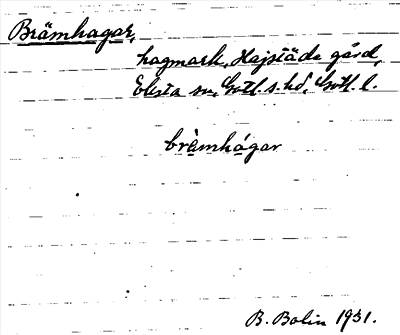 Brämhagar,
hagmark, Hajstäde gård,
Eksta sn, Gotl. s. hd, Gotl. l.
brämhágar
B. Bolin 1931.